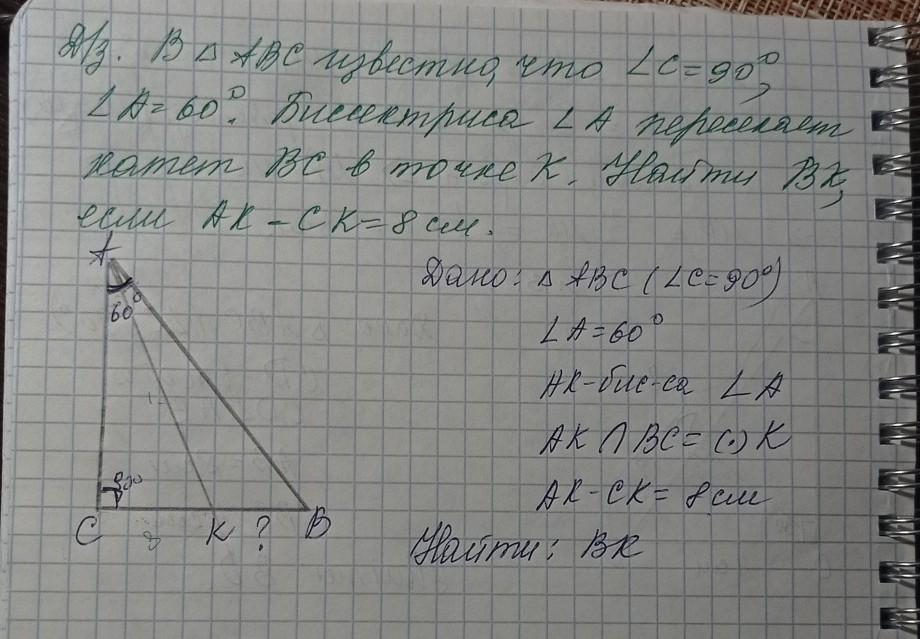 Д/з. В △ ABC известно, что ∠C=90°,
∠A=60°. Биссектриса ∠A пересекает
катет BC в точке K. Найти BK,
если AK - CK=8 см.
A
Дано: △ ABC (∠C=90°)
60°
∠A=60°
AK-бис-са ∠A
AK ∩ BC = (·) K
90°
AK-CK= 8 см
C K ? B
Найти: BK